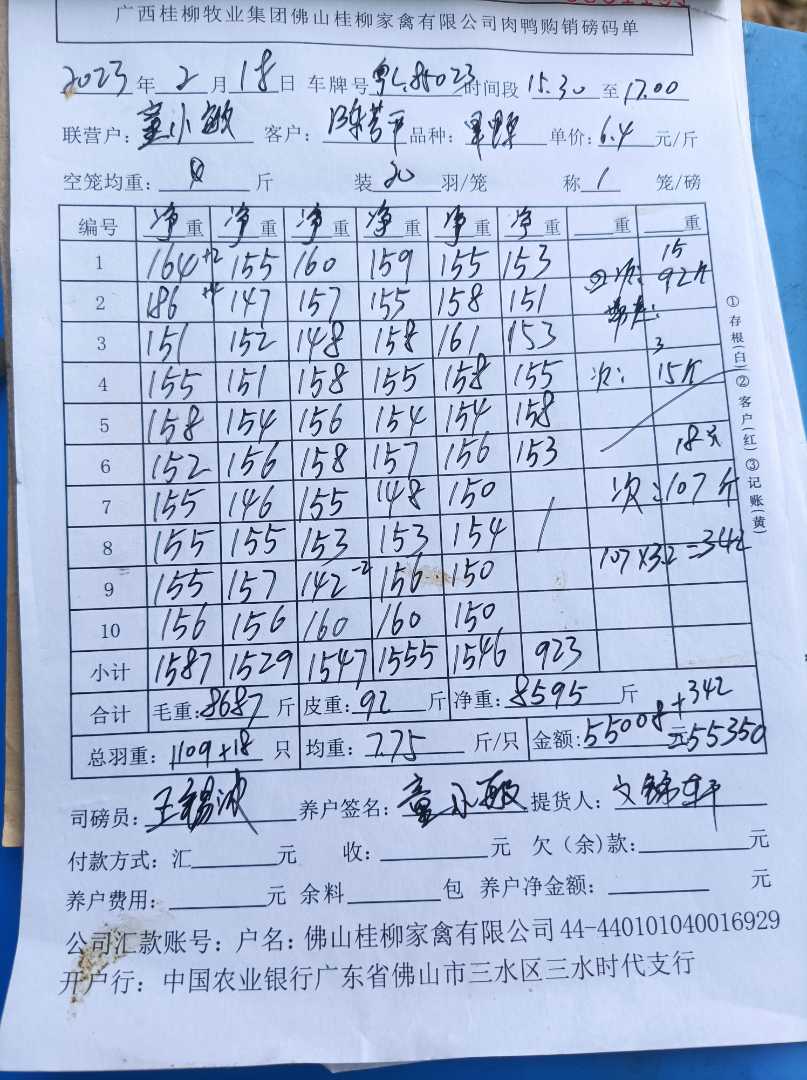 广西桂柳牧业集团佛山桂柳家禽有限公司肉鸭购销磅码单
2023年2月18日 车牌号 粤L85023 时间段 15.30 至 17.00
联营户：童小敏 客户：陈芳平 品种： 单价：6.4 元/斤
空笼均重： 斤 装 20 羽/笼 称 1 笼/磅
编号 净重 净重 净重 净重 净重 净重 重 重
1 164+2 155 160 159 155 153 15
2 186+4 147 157 155 158 151 次： 92斤
3 151 152 148 158 161 153 3
4 155 151 158 155 158 155 次： 15斤
5 158 154 156 154 154 158
6 152 156 158 157 156 153 18只
7 155 146 155 148 150 次：107斤
8 155 155 153 153 154 / 107×3.2=342
9 155 157 142-2 156 150
10 156 156 160 160 150
小计 1587 1529 1547 1555 1546 923
合计 毛重：8687 斤 皮重：92 斤 净重：8595 斤 +342
总羽重：1109+18 只 均重：7.75 斤/只 金额：55008 =55350
司磅员：王锡波 养户签名：童小敏 提货人：文锦轩
付款方式：汇 元 收： 元 欠（余）款： 元
养户费用： 元 余料 包 养户净金额： 元
公司汇款账号：户名：佛山桂柳家禽有限公司 44-440101040016929
开户行：中国农业银行广东省佛山市三水区三水时代支行
①存根(白)②客户(红)③记账(黄)